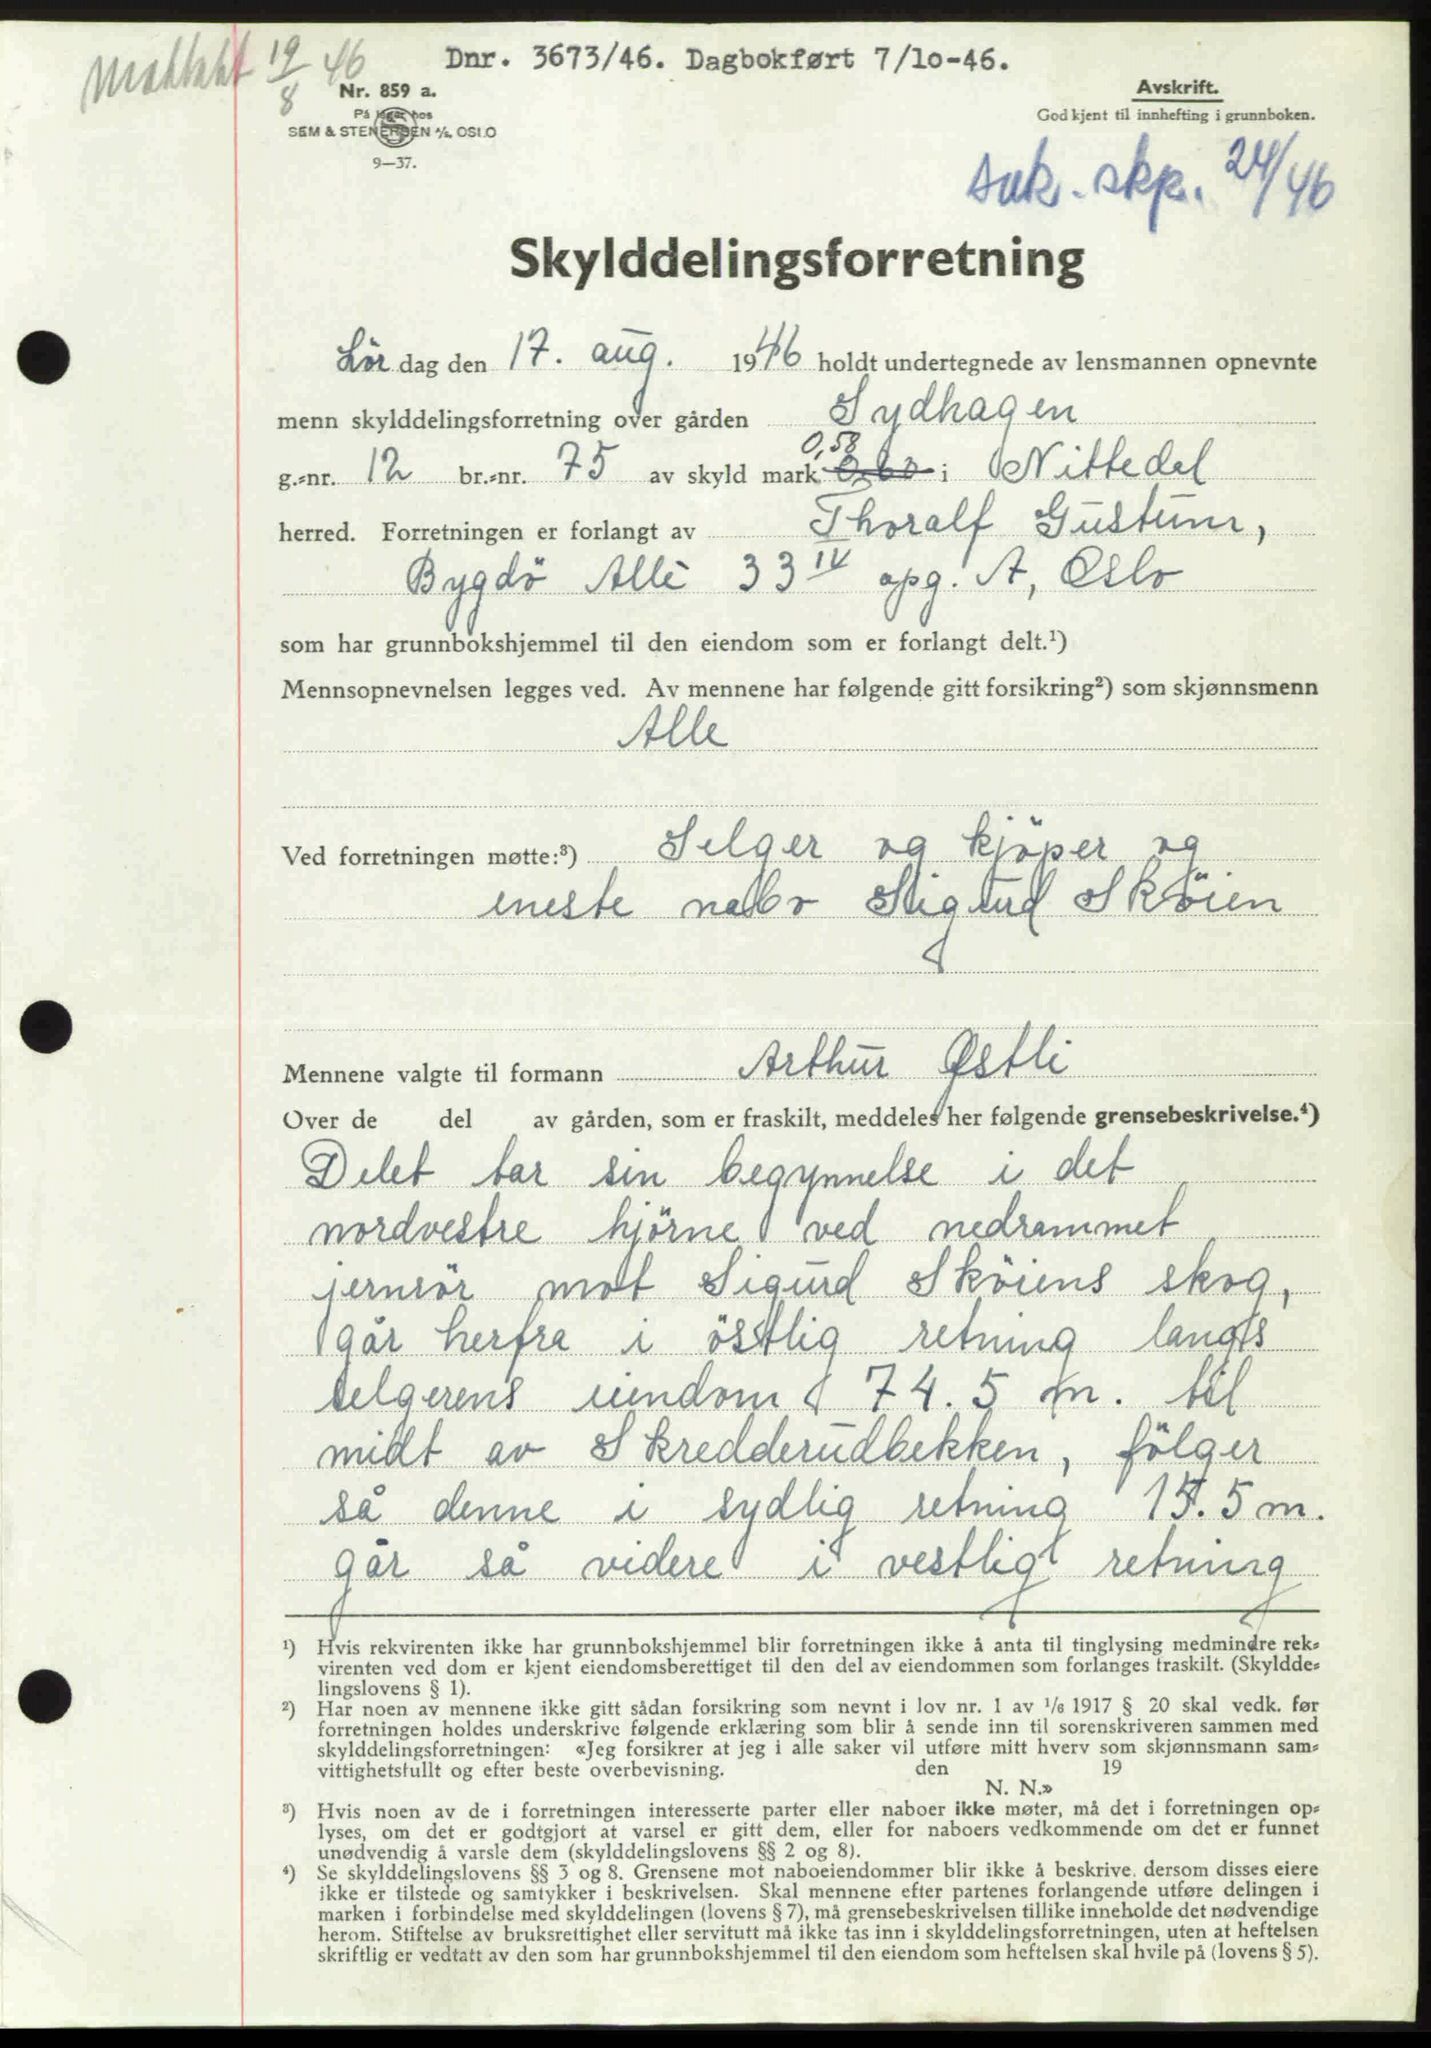 Mottatt 19/8 46
Dnr. 3673/46. Dagbokført 7/10-46.
Nr. 859 a.
På lager hos
SEM & STENERSEN A/S, OSLO
9—37.
Avskrift.
Godkjent til innhefting i grunnboken.
skp. 24/46
Skylddelingsforretning
Lör dag den 17. aug. 1946 holdt undertegnede av lensmannen opnevnte
menn skylddelingsforretning over gården Sydhagen
0,58
g.-nr. 12 br.-nr. 75 av skyld mark i Nittedal
herred. Forretningen er forlangt av Thoralf Gustum,
Bygdö Allè 33 IV opg. A, Oslo
som har grunnbokshjemmel til den eiendom som er forlangt delt.¹)
Mennsopnevnelsen legges ved. Av mennene har følgende gitt forsikring²) som skjønnsmenn
Alle
Ved forretningen møtte:³) Selger og kjöper og
eneste nabo Sigurd Sköien
Mennene valgte til formann Arthur Østli
Over de del av gården, som er fraskilt, meddeles her følgende grensebeskrivelse.⁴)
Delet tar sin begynnelse i det
nordvestre hjörne ved nedrammet
jernrör mot Sigurd Sköiens skog,
går herfra i östlig retning langs
selgerens eiendom 74.5 m. til
midt av Skredderudbekken, fölger
så denne i sydlig retning 15.5 m.
går så videre i vestlig retning
¹) Hvis rekvirenten ikke har grunnbokshjemmel blir forretningen ikke å anta til tinglysing medmindre rek-
virenten ved dom er kjent eiendomsberettiget til den del av eiendommen som forlanges fraskilt. (Skyldde-
lingslovens § 1).
²) Har noen av mennene ikke gitt sådan forsikring som nevnt i lov nr. 1 av 1/6 1917 § 20 skal vedk. før
forretningen holdes underskrive følgende erklæring som blir å sende inn til sorenskriveren sammen med
skylddelingsforretningen: «Jeg forsikrer at jeg i alle saker vil utføre mitt hverv som skjønnsmann sam-
vittighetsfullt og efter beste overbevisning. den 19
N. N.»
³) Hvis noen av de i forretningen interesserte parter eller naboer ikke møter, må det i forretningen op-
lyses, om det er godtgjort at varsel er gitt dem, eller for naboers vedkommende om det er funnet
unødvendig å varsle dem (skylddelingslovens §§ 2 og 8).
⁴) Se skylddelingslovens §§ 3 og 8. Grensene mot naboeiendommer blir ikke å beskrive, dersom disses eiere
ikke er tilstede og samtykker i beskrivelsen. Skal mennene efter partenes forlangende utføre delingen i
marken i forbindelse med skylddelingen (lovens § 7), må grensebeskrivelsen tillike inneholde det nødvendige
herom. Stiftelse av bruksrettighet eller servitutt må ikke tas inn i skylddelingsforretningen, uten at heftelsen
skriftlig er vedtatt av den som har grunnbokshjemmel til den eiendom som heftelsen skal hvile på (lovens § 5).